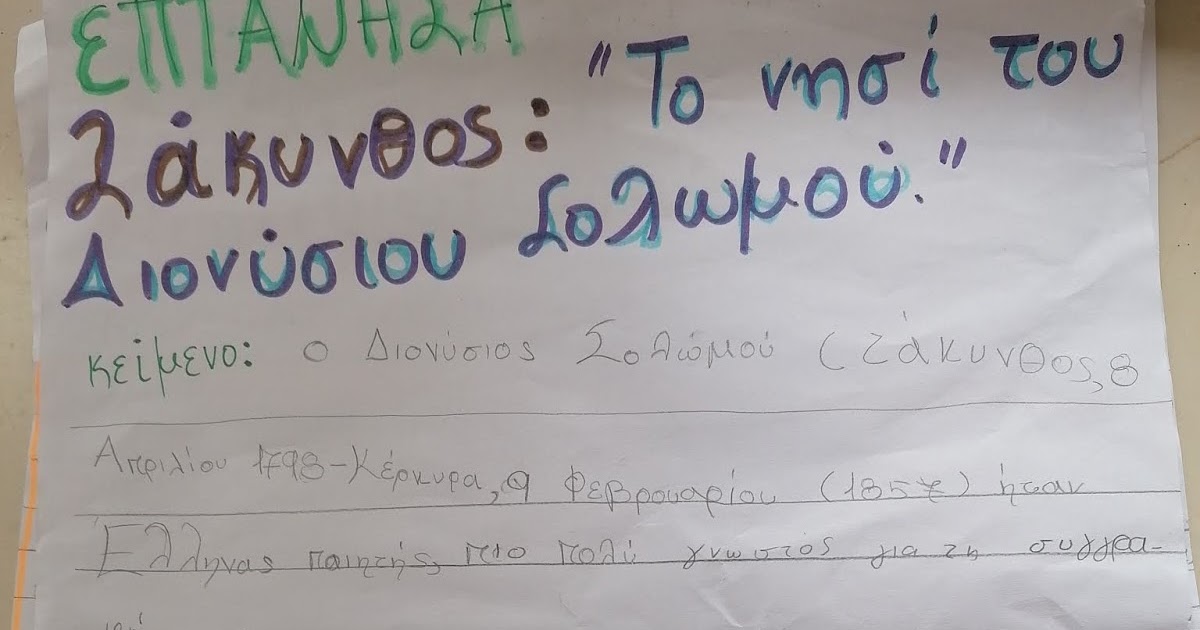 ΕΠΤΑΝΗΣΑ
Ζάκυνθος: "Το νησί του
Διονύσιου Σολωμού."
κείμενο: ο Διονύσιος Σολώμού (Ζάκυνθος, 8
Απριλίου 1798-Κέρκυρα, 9 Φεβρουαρίου (1857) ήταν
Έλληνας ποιητής, πιο πολύ γνωστός για τη συγγρα-